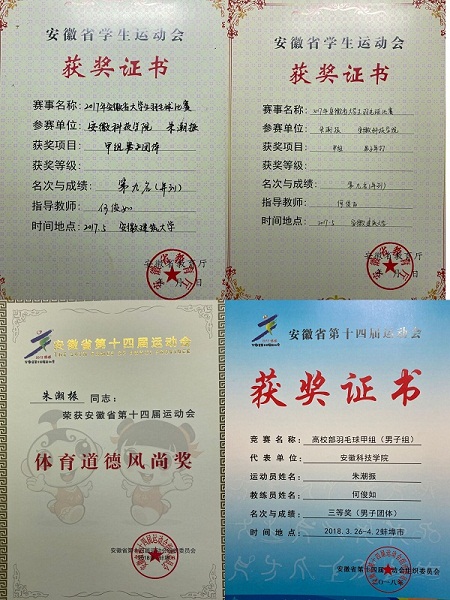 安徽省学生运动会
获奖证书
赛事名称：2017年安徽省大学生羽毛球比赛
参赛单位：安徽科技学院 朱潮报
获奖项目：甲组男子团体
获奖等级：
名次与成绩：第九名(并列)
指导教师：何俊如
时间地点：2017.5 安徽建筑大学
安徽省学生运动会
获奖证书
赛事名称：2017年安徽省大学生羽毛球比赛
参赛单位：朱潮报 安徽科技学院
获奖项目：甲组 男子双打
获奖等级：
名次与成绩：第九名(并列)
指导教师：何俊如
时间地点：2017.5 安徽建筑大学
安徽省第十四届运动会
朱潮报 同志：
荣获安徽省第十四届运动会
体育道德风尚奖
安徽省第十四届运动会组织委员会
安徽省第十四届运动会
获奖证书
竞赛名称：高校部羽毛球甲组（男子组）
代表单位：安徽科技学院
运动员姓名：朱潮报
教练员姓名：何俊如
名次与成绩：三等奖（男子团体）
时间地点：2018.3.26-4.2蚌埠市
安徽省第十四届运动会组织委员会
二〇一八年